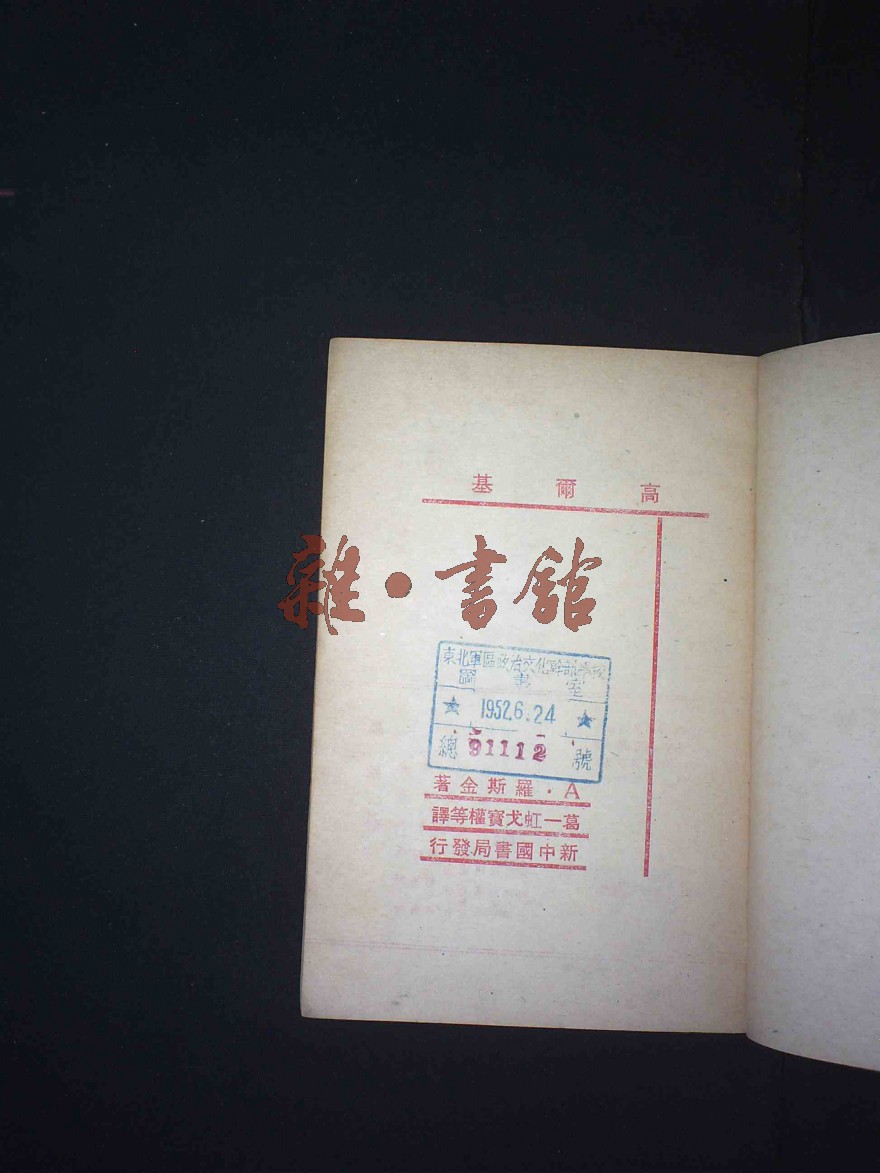 高爾基
雜·書館
東北軍區政治文化幹部學校
圖書室
★ 1952.6.24 ★
總 91112 號
A·羅斯金著
葛一虹戈寶權等譯
新中國書局發行